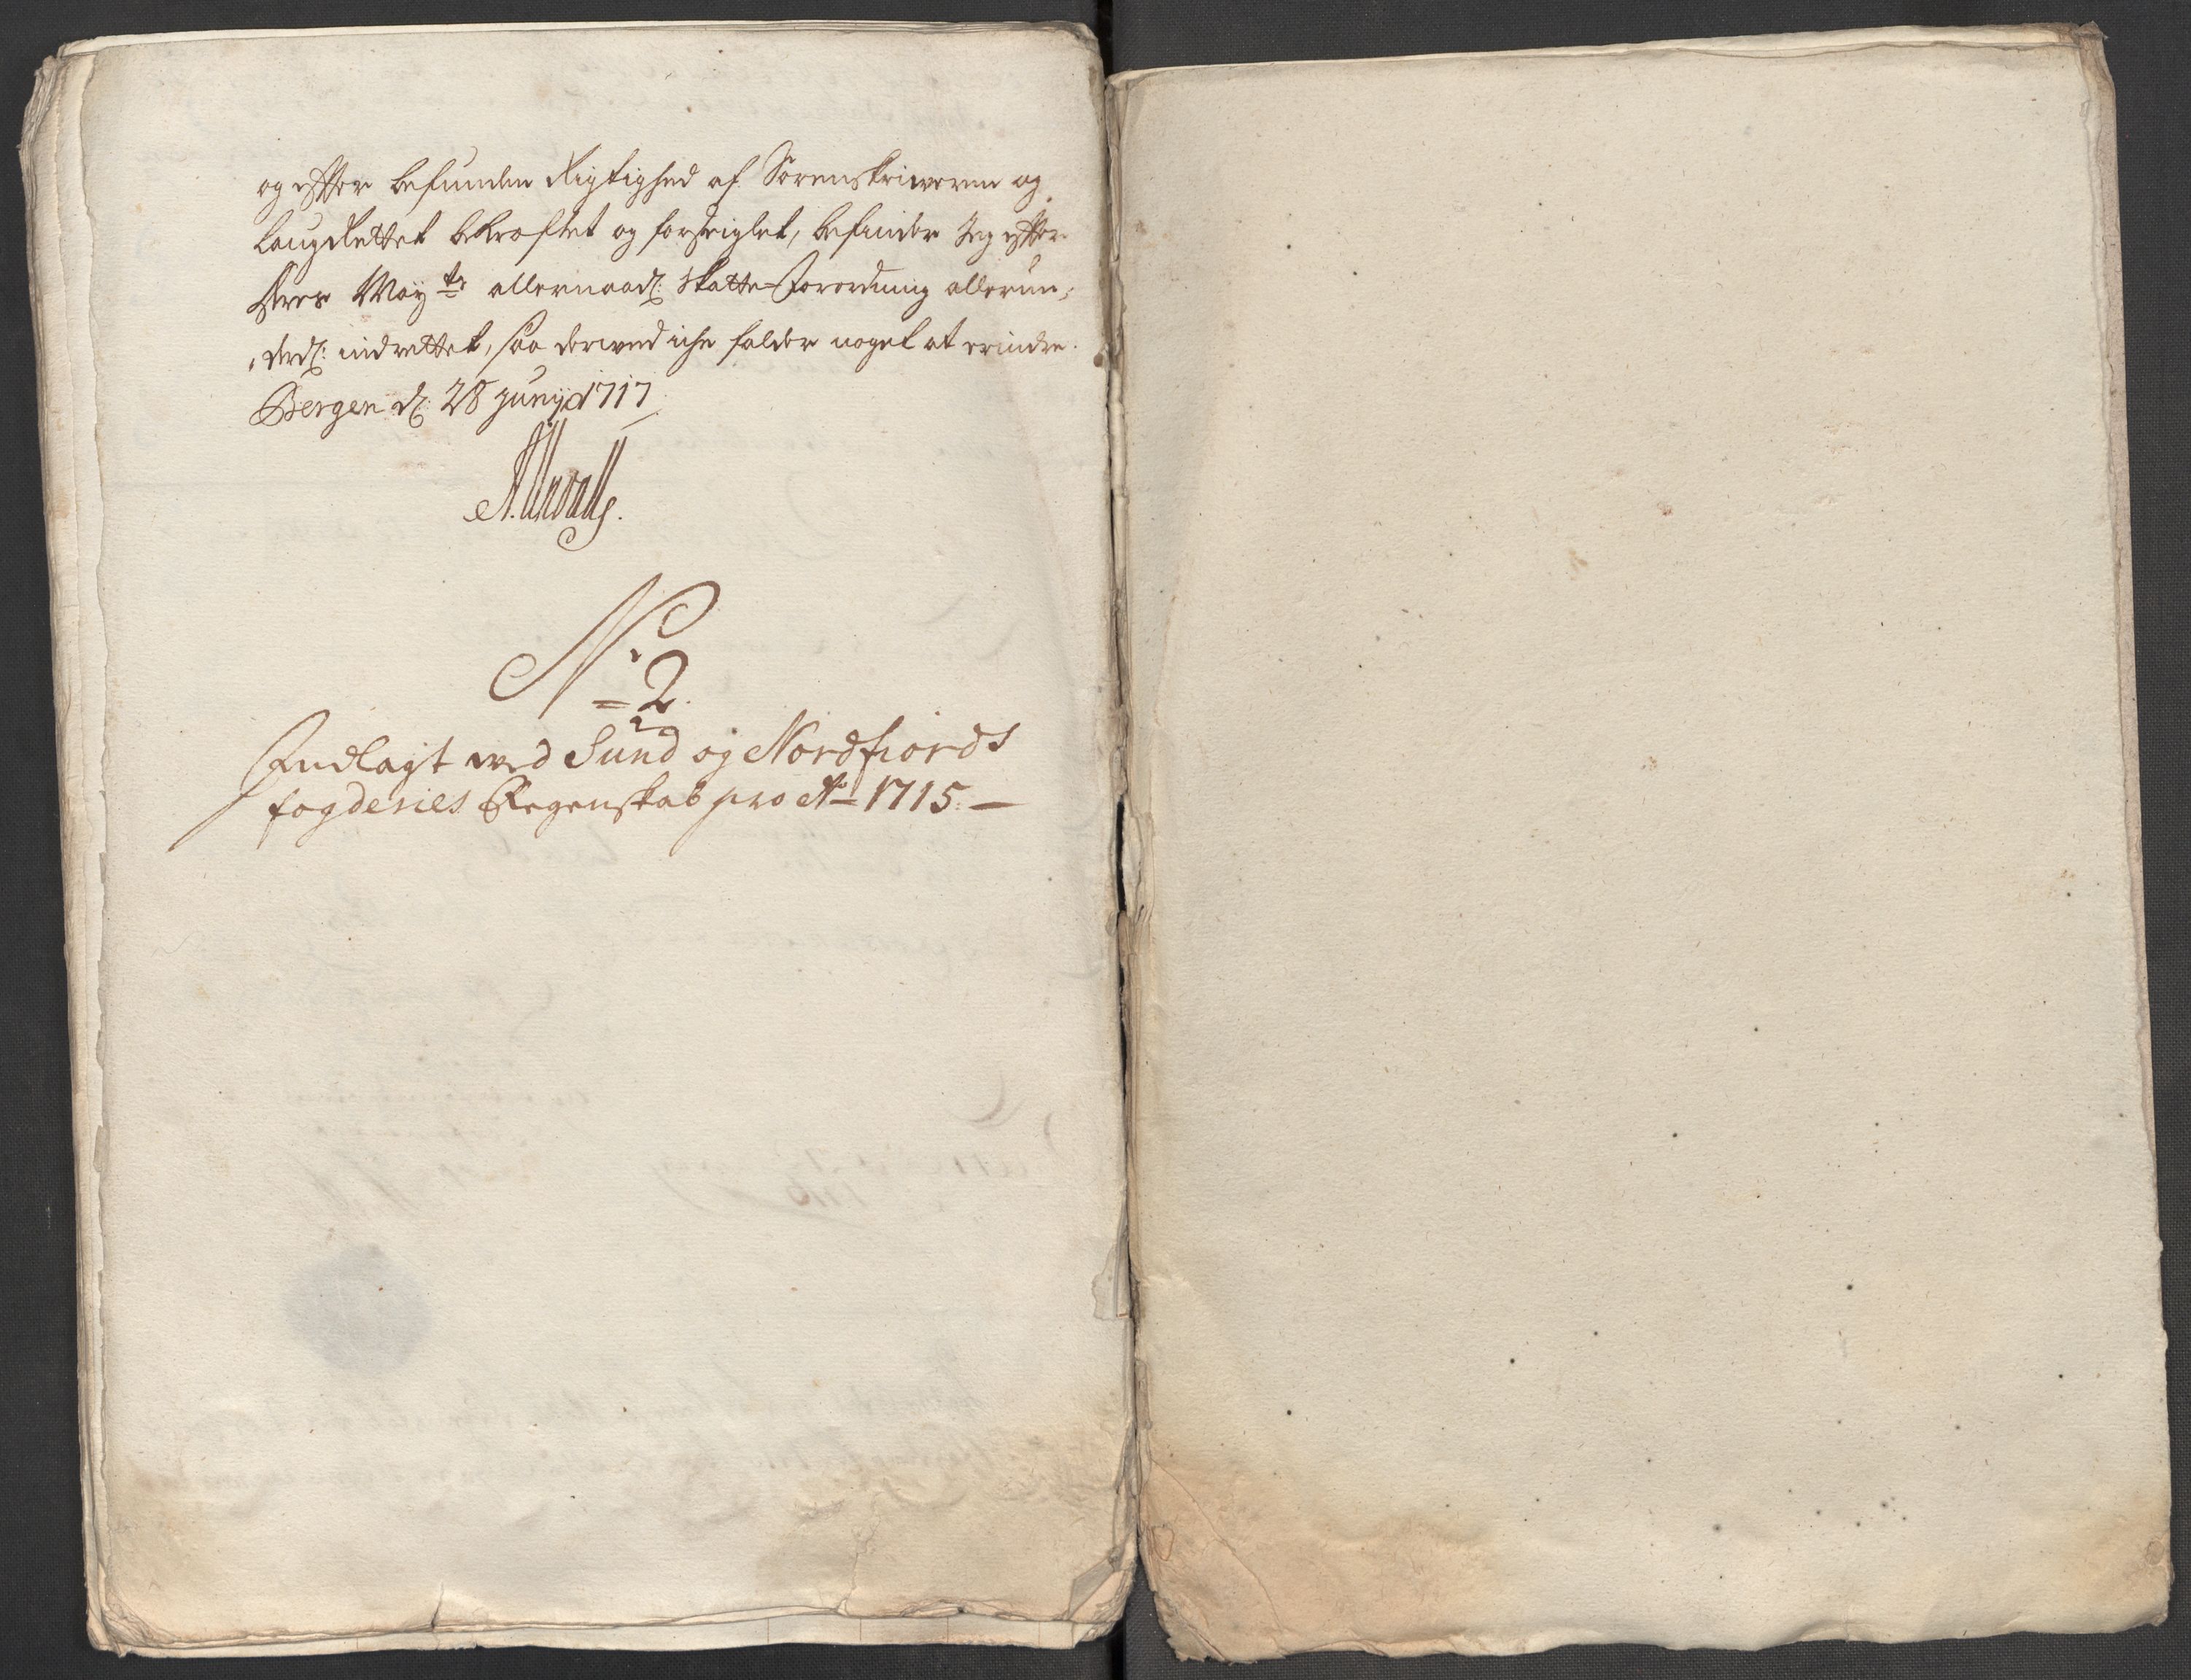 og effter befunden Rigtighed af Sorenskriweren og
LaugRettet bekræftet og forseiglet, befinder Jeg effter
Deres May.ts allernaad: Skatte-Forordning allerun,,
,,derd: indrettet, saa derwed iche falder noget at erindre.
Bergen d: 28 Junij 1717
No
2.
Indlagt wed Sund og Nordfiords
fogderies Regenskab pro Ao 1715.